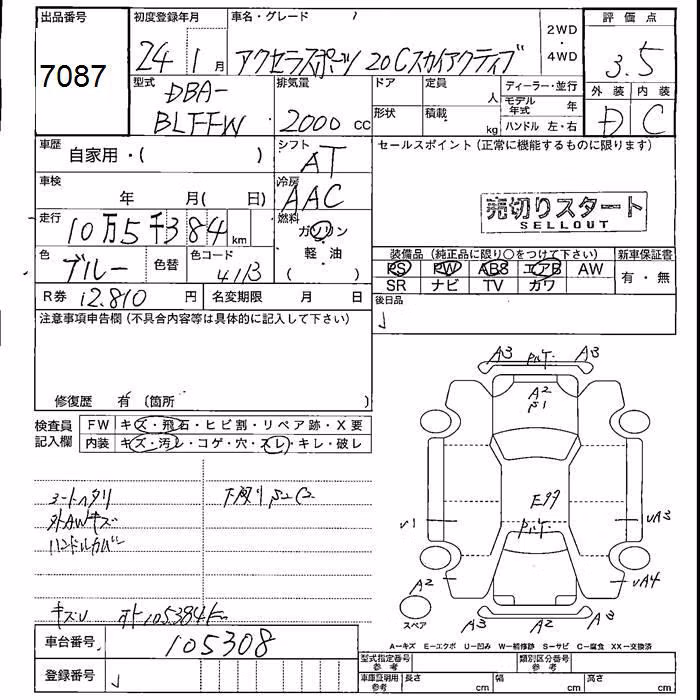 出品番号 初度登録年月 車名・グレード 2WD・4WD 評価点
7087 24 1月 アクセラスポーツ 20Cスカイアクティブ 3.5
型式 排気量 ドア 定員 人 ディーラー・並行 外装 内装
DBA- 形状 積載 kg モデル年式 年 D C
BLFFW 2000 cc ハンドル 左・右
車歴 自家用・( ) シフト AT セールスポイント(正常に機能するものに限ります)
車検 年 月( 日) 冷房 AAC
売切りスタート
SELLOUT
走行 10万5千384 km 燃料 ガソリン
軽油
( )
色 ブルー 色替 色コード 41B
装備品(純正品に限り○をつけて下さい) 新車保証書
PS PW ABS エアB AW 有・無
SR ナビ TV カワ
R券 12.810 円 名変期限 月 日 後日品
注意事項申告欄(不具合内容等は具体的に記入して下さい)
修復歴 有(箇所 )
検査員記入欄 FW キズ・飛石・ヒビ割・リペア跡・X要
内装 キズ・汚レ・コゲ・穴・スレ・キレ・破レ
A3 A3
A2
E99
U1
UA3
A2
UA4
スペア
A3 A2 A3
シートヘタリ
外AWキズ
ハンドルカバー
キズU
105384km
A−キズ E−エクボ U−凹み W−補修跡 S−サビ C−腐食 XX−交換済
車台番号 105308
型式指定番号 参考 類別区分番号 参考
登録番号
車庫証明用 参考 長さ cm 幅 cm 高さ cm